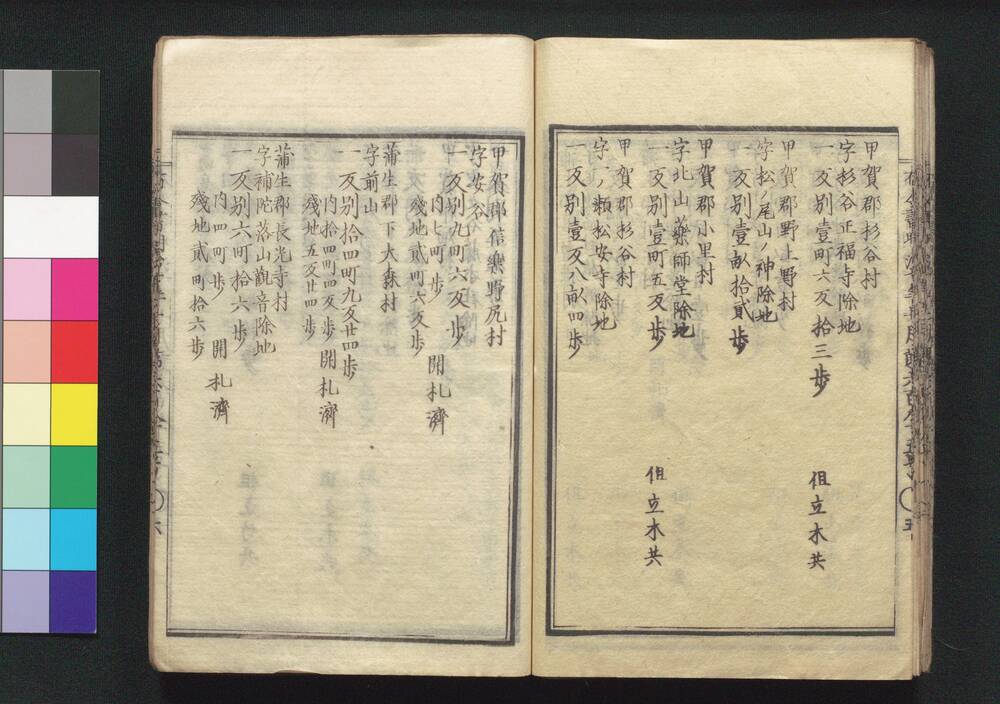 甲賀郡杉谷村
字杉谷正福寺除地
一 反別壹町六反拾三歩 但立木共
甲賀郡野上野村
字松ノ尾山ノ神除地
一 反別壹畝拾貳歩
甲賀郡小里村
字北山藥師堂除地
一 反別壹町五反歩 但立木共
甲賀郡杉谷村
字ノ類松安寺除地
一 反別壹反八畝四歩
甲賀郡信樂野尻村
字安谷
一 反別九町六反歩
内七町歩 開札濟
殘地貳町六反歩
蒲生郡下大森村
字前山
一 反別拾四町九反廿四歩
内拾四町四反歩 開札濟
殘地五反廿四歩
蒲生郡長光寺村
字補陀落山觀音除地
一 反別六町拾六歩
内四町歩 開札濟
殘地貳町拾六歩